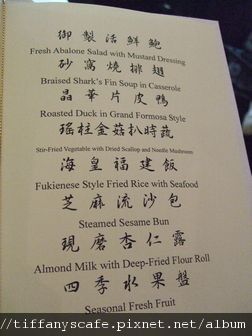 御製活鮮鮑
Fresh Abalone Salad with Mustard Dressing
砂窩燒排翅
Braised Shark's Fin Soup in Casserole
晶華片皮鴨
Roasted Duck in Grand Formosa Style
瑤柱金菇扒時蔬
Stir-Fried Vegetable with Dried Scallop and Needle Mushroom
海皇福建飯
Fukienese Style Fried Rice with Seafood
芝麻流沙包
Steamed Sesame Bun
現磨杏仁露
Almond Milk with Deep-Fried Flour Roll
四季水果盤
Seasonal Fresh Fruit
http://tiffanyscafe.pixnet.net/album